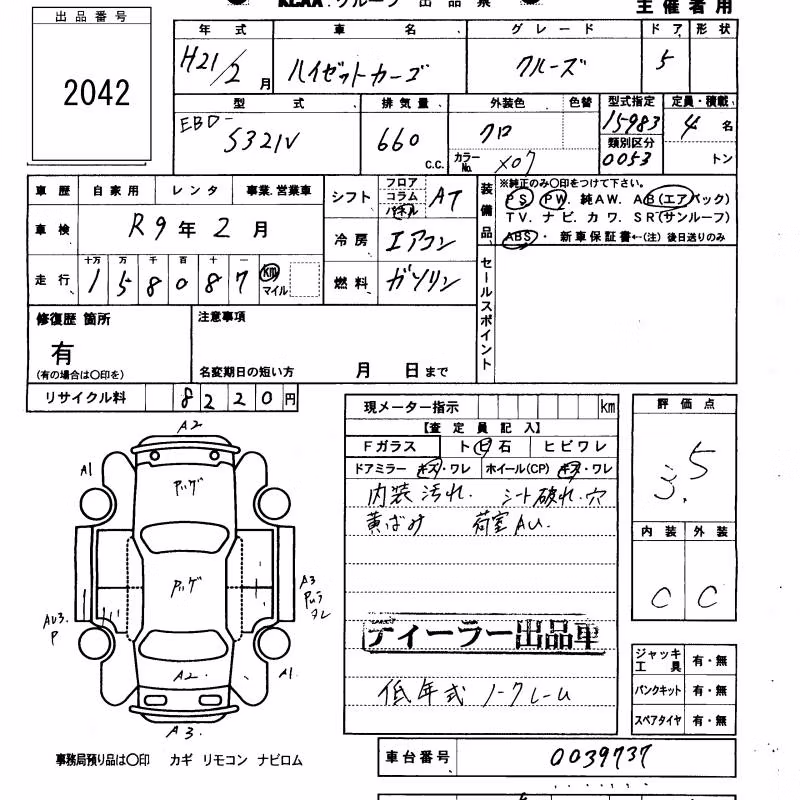 出品番号
2042
KCAA.グループ 出品票
主催者用
年式 車名 グレード ドア 形状
H21/2月 ハイゼットカーゴ クルーズ 5
型式 排気量 外装色 色替 型式指定 定員・積載
EBD-S321V 660 C.C. クロ 15983 4名
カラーNo. X07 類別区分 0053 トン
車歴 自家用 レンタ 事業.営業車
車検 R9年2月
走行 十万 万 千 百 十 一
158087 km マイル
シフト フロア コラム パネル AT
冷房 エアコン
燃料 ガソリン
装備品
※純正のみ〇印をつけて下さい。
PS. PW. 純AW. AB(エアバック)
TV. ナビ. カワ. SR(サンルーフ)
ABS・ 新車保証書←(注) 後日送りのみ
セールスポイント
修復歴 箇所
有
(有の場合は〇印を)
注意事項
名変期日の短い方 月 日まで
リサイクル料 8220円
現メーター指示 km
【査定員記入】
Fガラス トビ石 ヒビワレ
ドアミラー キズ・ワレ ホイール(CP) キズ・ワレ
内装汚れ. シート破れ.穴
黄ばみ 荷室AU.
ディーラー出品車
低年式 ノークレーム
評価点
3.5
内装 外装
C C
ジャッキ工具 有・無
パンクキット 有・無
スペアタイヤ 有・無
A2
A1
アッゲ
アッゲ
A3
AU3.
P
A2.
A1.
A3.
事務局預り品は〇印 カギ リモコン ナビロム
車台番号 0039737